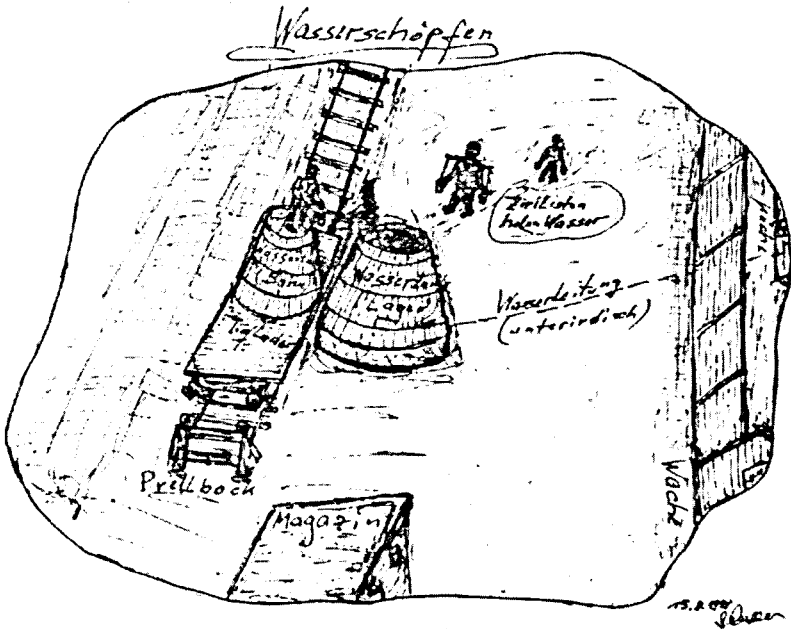 Wasserschöpfen
Zivilisten
holen Wasser
Wasser
Bahn
Wasser
Lager
Tieflader
Wasserleitung
(unterirdisch)
Prellbock
Magazin
Wache